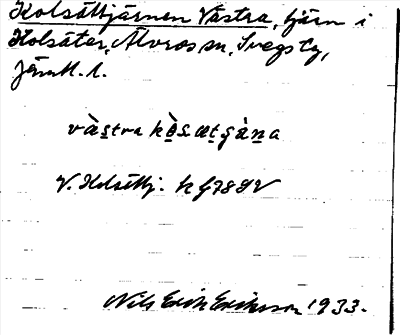 Kolsättjärnen Västra, tjärn i
Kolsäter, Älvros sn, Svegs tg,
Jämtl. l.
västra
V. Kolsättj. k G78 SV
Nils Erik Eriksson 1933.